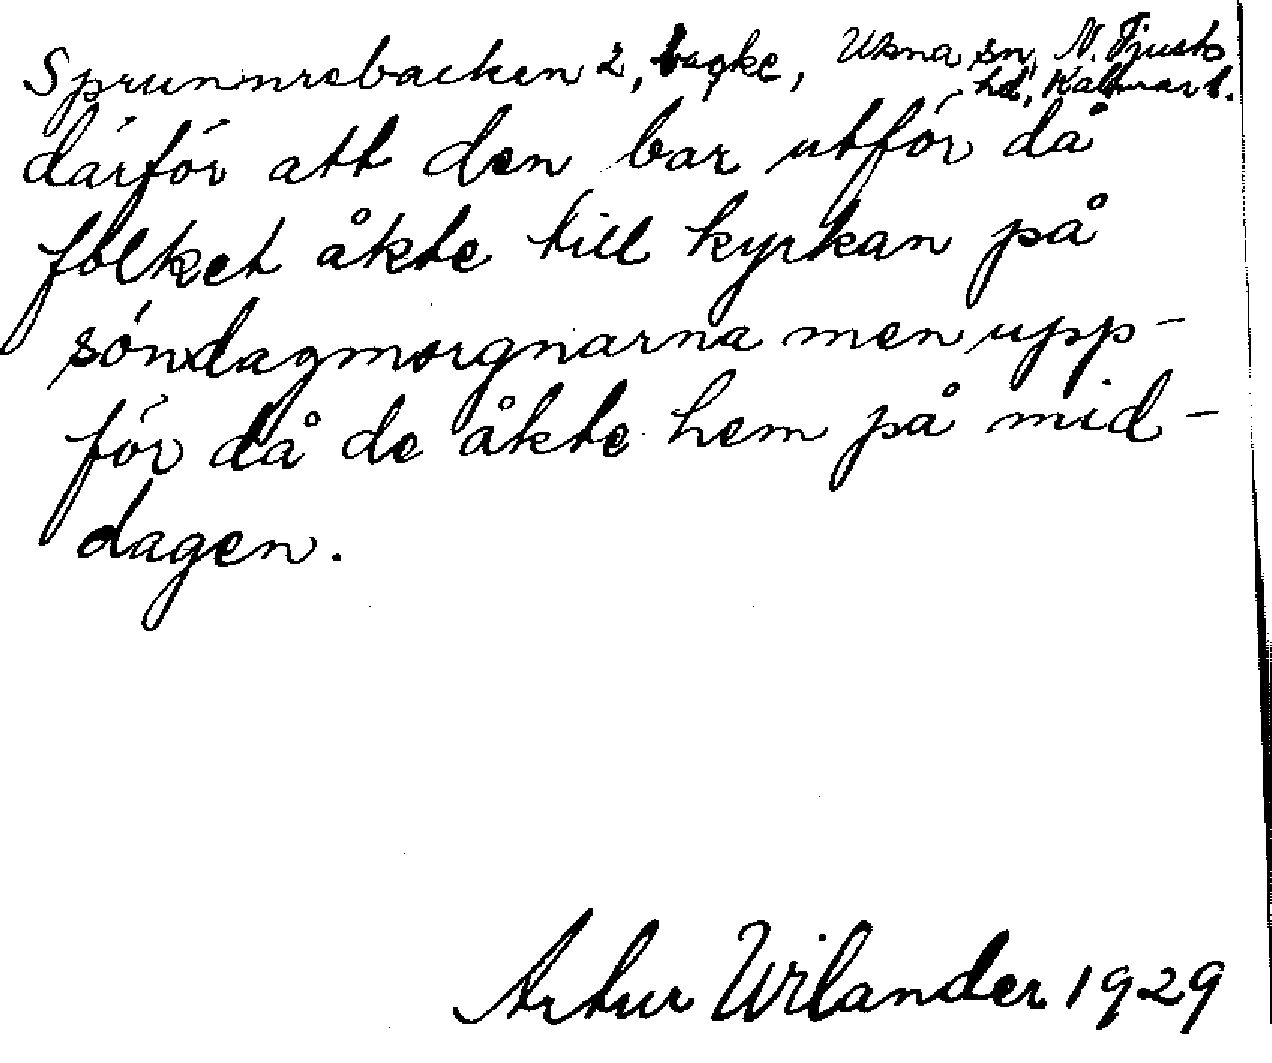 Sprunnrebacken 2, backe, Ukna sn, N. Tjusts
hd, Kalmar l.
därför att den bar utför då
folket åkte till kyrkan på
söndagmorgnarna men upp-
för då de åkte hem på mid-
dagen.
Artur Wilander 1929